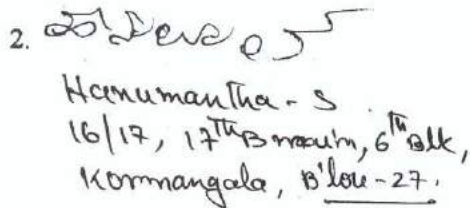 2.
Hanumantha - S
16/17, 17th B main, 6th Blk,
Kormangala, B'lore - 27.